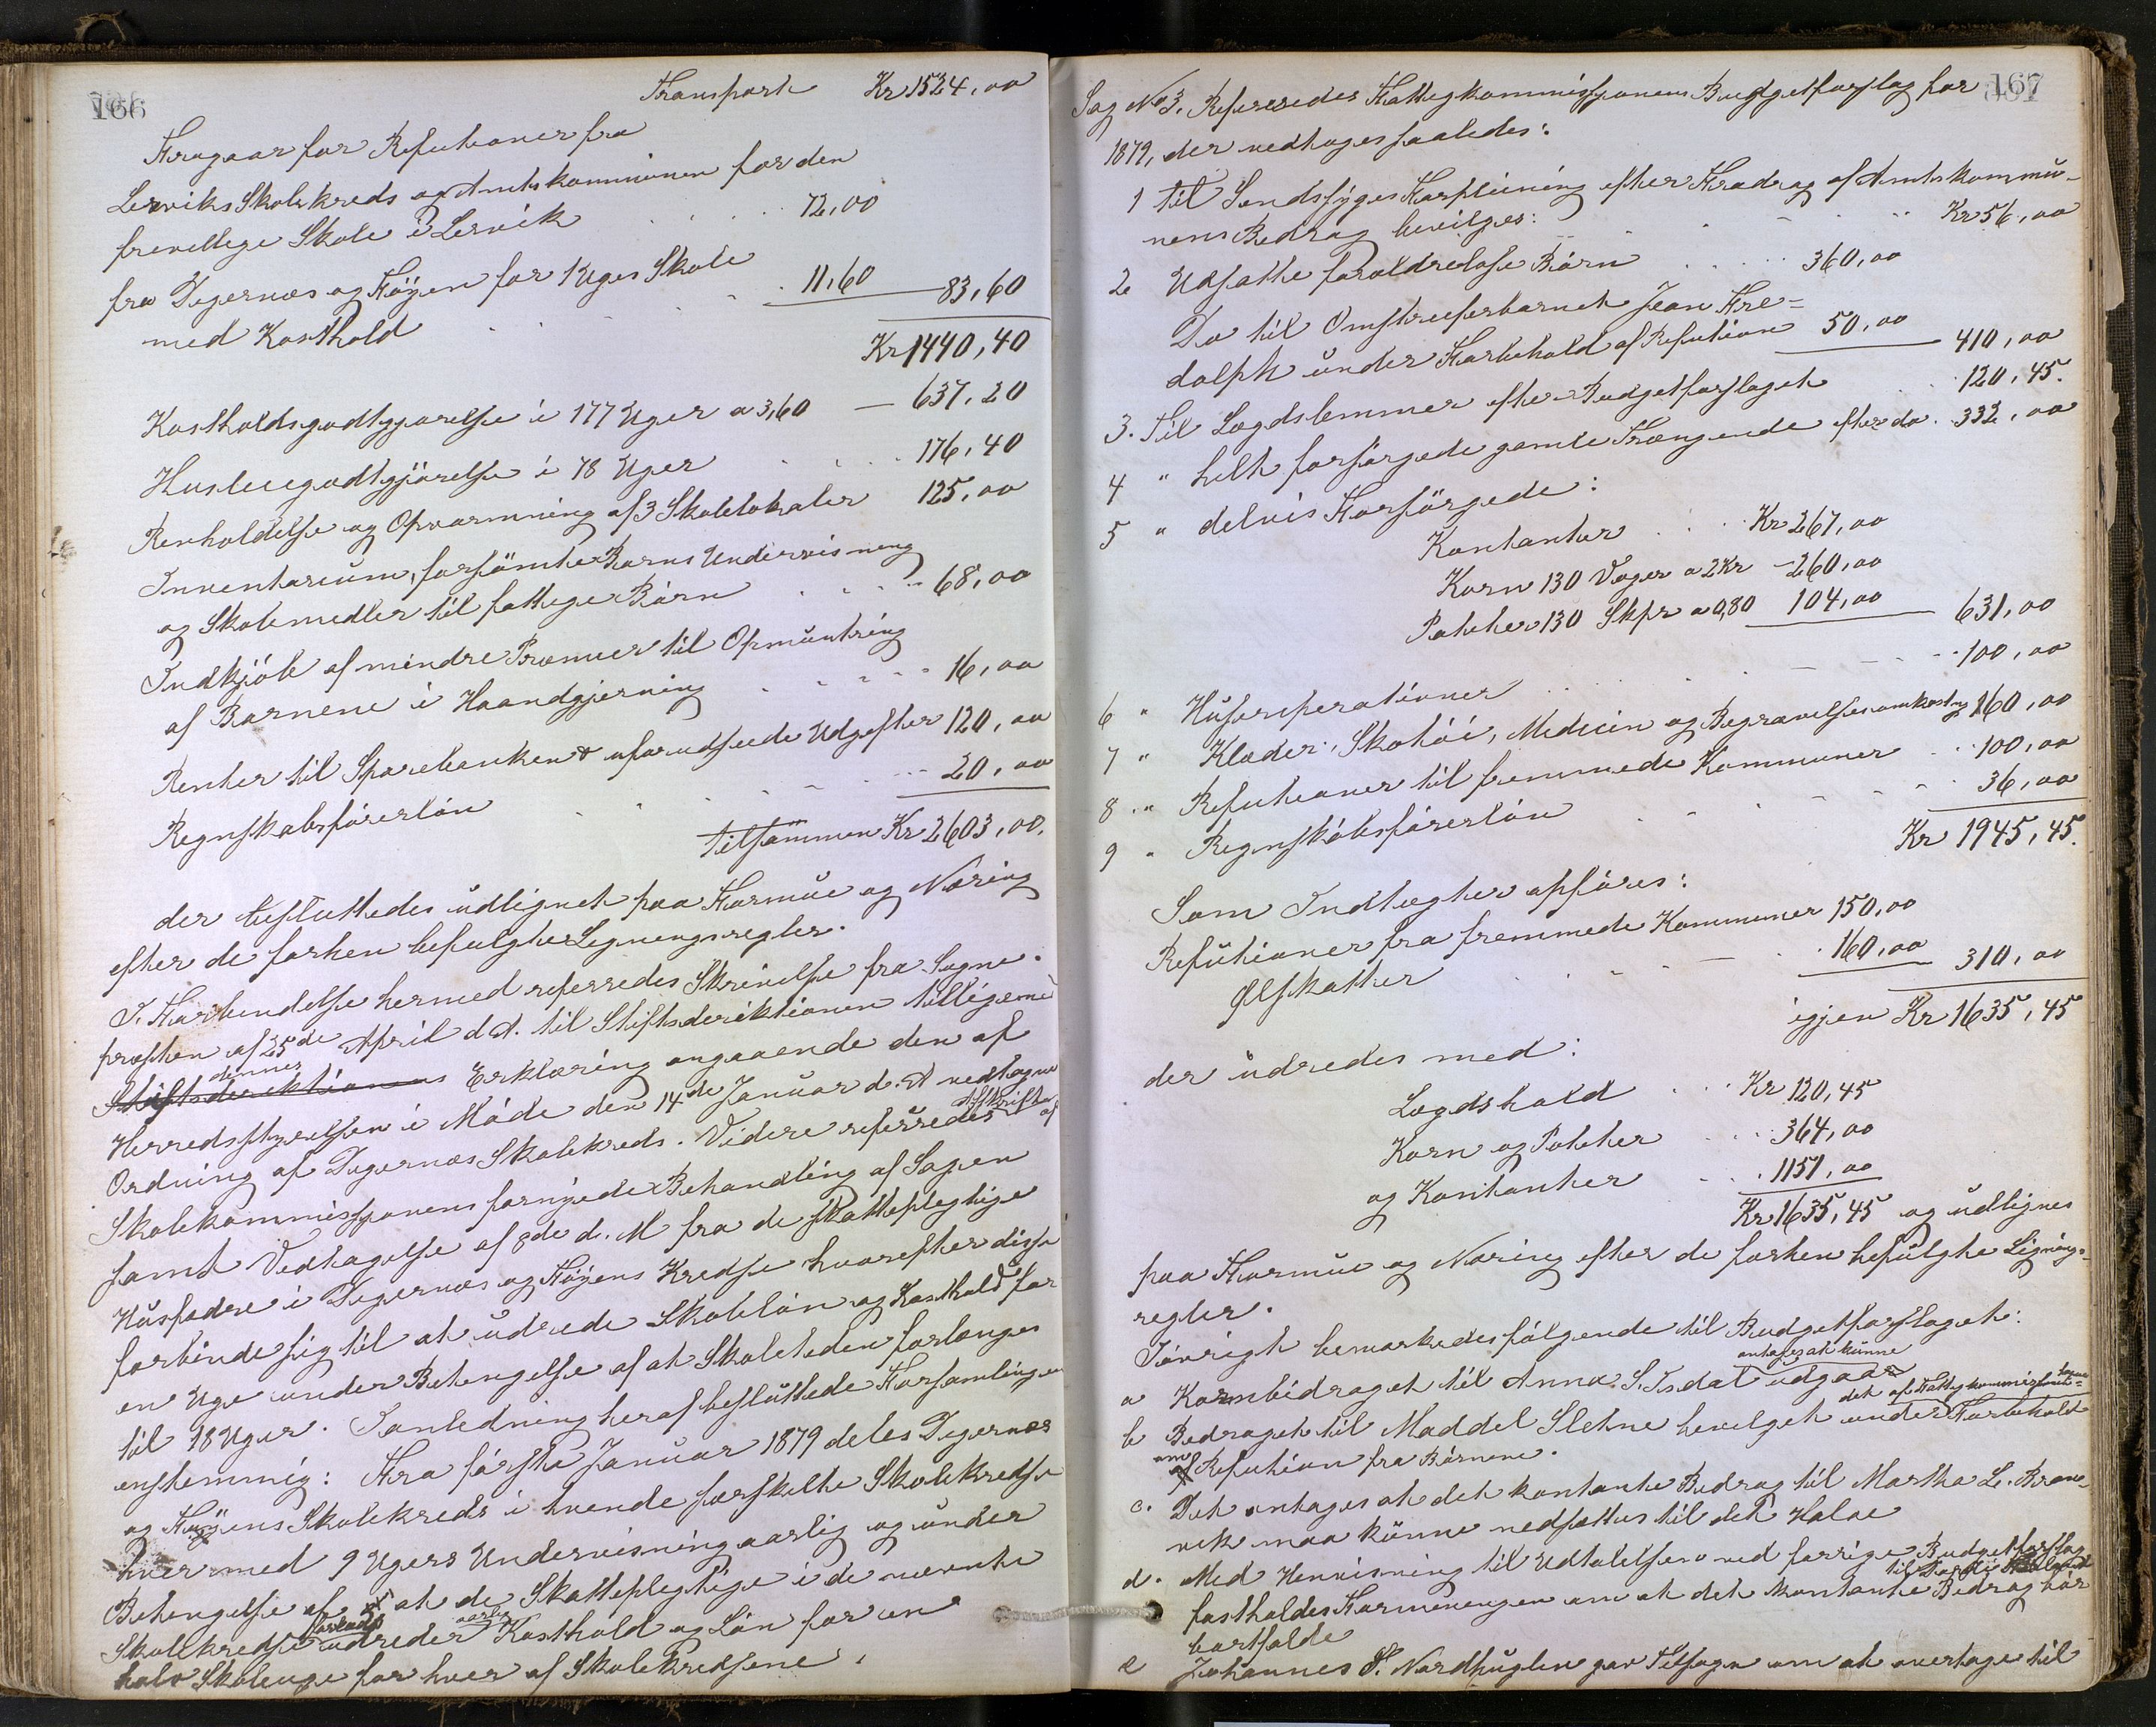 166
Transport Kr 1524,00
Fragaar for Refutioner fra
Lerviks Skolekreds og Amtskommunen for den
frivillige Skole i Lervik . . . . 72,00
fra Digernæs og Høyen for 1 Uges Skole
med Kosthold . . . . 11,60 83,60
Kr 1440,40
Kostholdsgodtgjørelse i 177 Uger a 3,60 — 637,20
Husleiegodtgjørelse i 78 Uger . . . 176,40
Renholdelse og Opvarmning af 3 Skolelokaler 125,00
Inventarium, forsømte Børns Undervisning
og Skolemidler til fattige Børn . . . . 68,00
Indkjøb af mindre Præmier til Opmuntring
af Børnene i Haandgjerning . . . . 16,00
Renter til Sparebanken & uforudseede Udgifter 120,00
Regnskabsførerløn . . . . 20,00
tilsammen Kr 2603,00.
der besluttedes udlignet paa Formue og Næring
efter de forhen befulgte Ligningsregler.
I Forbindelse hermed referredes Skrivelse fra Sogne-
præsten af 25de April d. A. til Stiftsdirektionen tilligemed
Stiftsdirektionens dennes Erklæring angaaende den af
Herredsstyrelsen i Møde den 14de Januar d. A vedtagne
Ordning af Digernæs Skolekreds. Videre referredes Afskrift af
Skolekommissionens fornyede Behandling af Sagen
samt Vedtagelse af 8de d. M fra de skattepligtige
Husfædre i Digernæs og Høyens Kredse hvorefter disse
forbinde sig til at udrede Skoleløn og Kosthold for
en Uge under Betingelse af at Skoletiden forlænges
til 18 Uger. I anledning heraf besluttede Forsamlingen
enstemmig: Fra første Januar 1879 deles Digernæs
og Høyens Skolekreds i tvende særskilte Skolekredse
hver med 9 Ugers Undervisning aarlig og under
Betingelse af at de Skattepligtige i de nævnte
Skolekredse forlods udreder aarlig Kosthold og Løn for en
halv Skoleuge for hver af Skolekredsene.
167
Sag No 3. Referredes Fattigkommissionens Budgetforslag for
1879, der vedtoges saaledes:
1 til Sindssyges Forpleining efter Fradrag af Amtskommu-
nens Bidrag bevilges: . . . . Kr 56,00
2 Udsatte forældreløse Børn . . . . 360,00
Do til Omstreiferbarnet Jean Fre-
dolph under Forbehold af Refution 50,00 410,00
3. Til Lægdslemmer efter Budgetforslaget . . 120,45.
4 " helt forsørgede gamle Trængende efter do. 332,00
5 " delvis Forsørgede:
Kontanter . . Kr 267,00
Korn 130 Voger a 2 Kr - 260,00
Poteter 130 Skpr a 0,80 104,00 631,00
6 " Husreperationer . . . . 100,00
7 " Klæder, Skotøi, Medicin og Begravelsesomkostng 160,00
8 " Refutioner til fremmede Kommuner . . 100,00
9 " Regnskabsførerløn . . . . 36,00
Kr 1945,45.
Som Indtægter opføres:
Refutioner fra fremmede Kommuner 150,00
Ølskatter . . . . 160,00 310,00
igjen Kr 1635,45
der udredes med:
Lægdshold . . Kr 120,45
Korn og Poteter . . . 364,00
og Kontanter . . . 1151,00
Kr 1635,45 og udlignes
paa Formue og Næring efter de forhen befulgte Lignings-
regler.
Iøvrigt bemærkedes følgende til Budgetforslaget:
a Kornbidraget til Anna S. Isdal antages at kunne udgaar
b Bidraget til Maddel Sletne bevilget under det af Fattigkommissionen Forbehold
om af Refution fra Børnene.
c. Det antages at det kontante Bidrag til Martha L. Brane-
vik maa kunne nedsættes til det Halve
d. Med Henvisning til Udtalelsen ved forrige Budgetforslag
fastholdes Formeningen om at det kontante Bidrag bør
bortfalde
e Johannes O. Nordhuglen gav Tilsagn om at overtage til